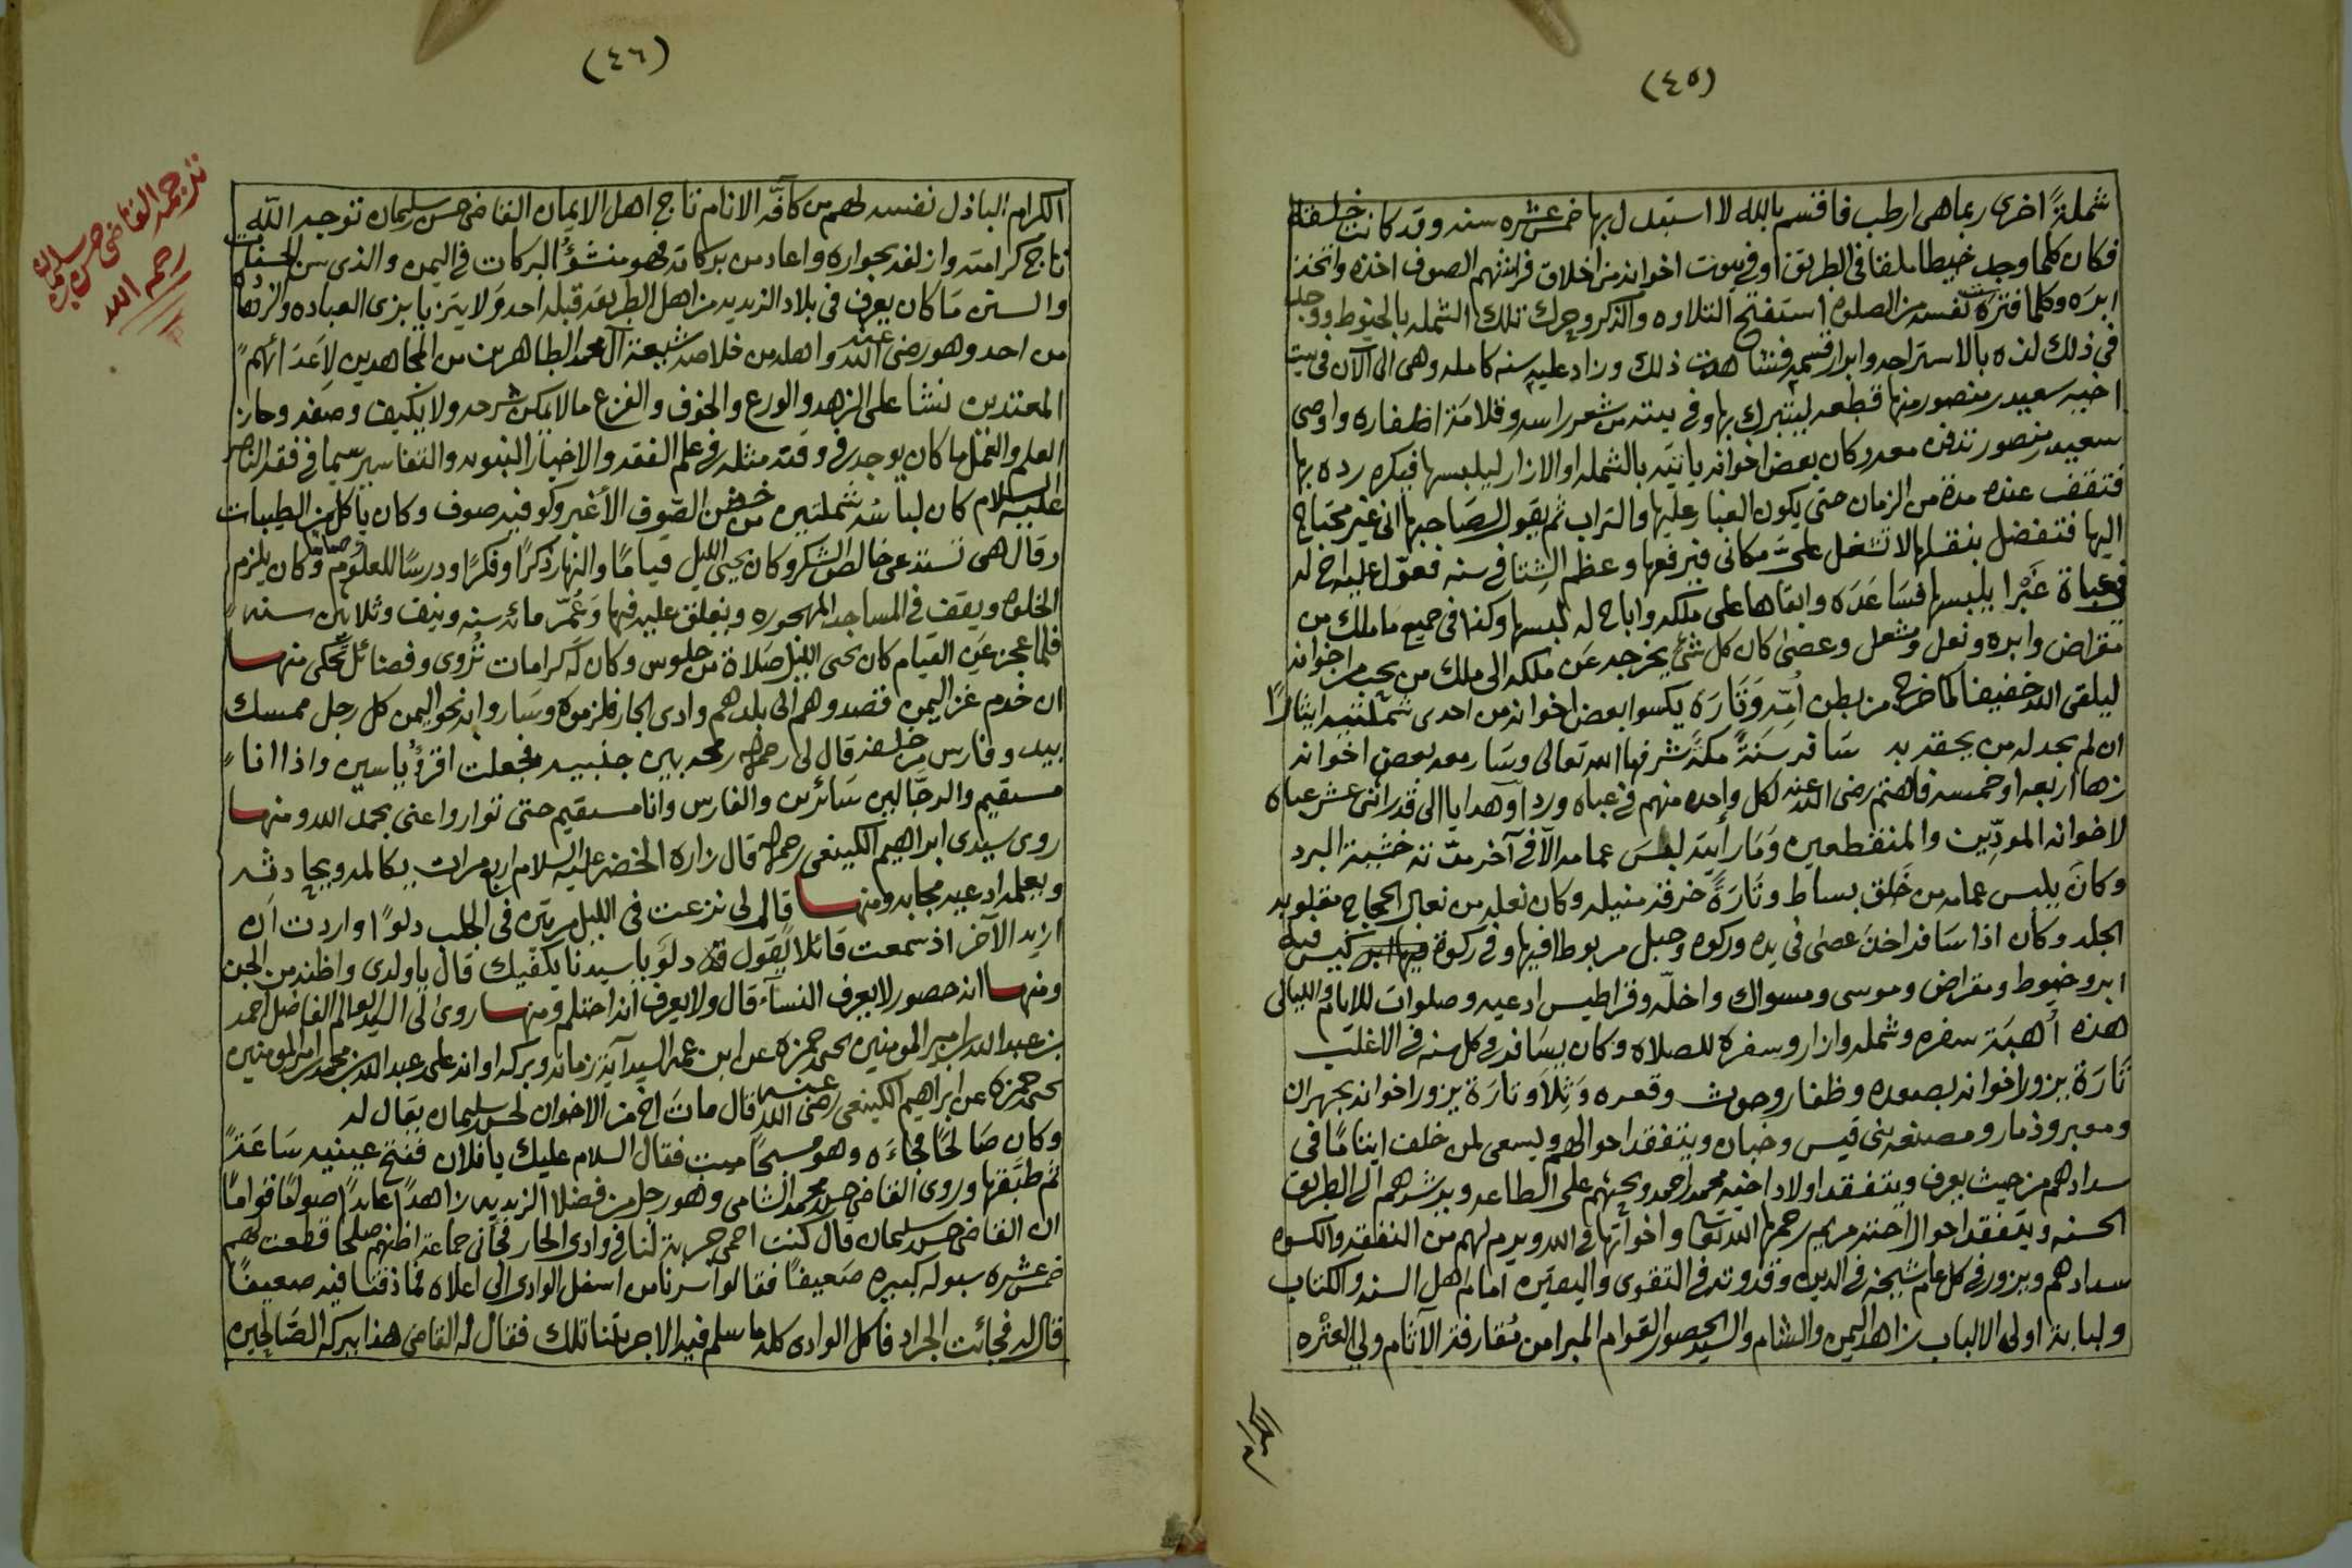 (٤٥)
شملة اخرى ربما هى ارطب فاقسم بالله لا استبدل بها خمس عشره سنه وقد كانت خلقه
فكان كلما وجد خيطا ملقا فى الطريق او فى بيوت اخوانه من اخلاق فراشهم الصوف اخذه واتخذ
ابره وكلما فترت نفسه من الصلوة استفتح التلاوه والذكر وحرك تلك الشمله بالخيوط ووجد
فى ذلك لذه بالاستراحه وابرار قسمه فشاهدت ذلك وزاد عليه سنه كامله وهى الى الآن فى بيت
اخيه سعيد بن منصور منها قطعه ليتبرك بها وفى بيته من شعر راسه وقلامة اظفاره واوصى
سعيد بن منصور تدفن معه وكان بعض اخوانه ياتيه بالشمله او الازار ليلبسها فيكره رده بها
فتقف عنده مدة من الزمان حتى يكون الغبار عليها والتراب ثم يقول لصاحبها انى غير محتاج
اليها فتفضل بنقلها لا تشغل علىّ مكانى فيرفعها وعظم الشتا فى سنه فعوّل عليه اخ له
فى عباة غَبْرا يلبسها فساعده وابقاها على ملكه واباح له لبسها وكذا فى جميع ما ملك من
مقراض وابره ونعل ومشعل وعصى كان كل شئ يخرجه عن ملكه الى ملك من يحب من اخوانه
ليلقى الله خفيفا كما خرج من بطن اُمّه وتارة يكسوا بعض اخوانه من احدى شملتيه ايثارًا
ان لم يجد له من يحقد به سافر سَنَةً مكة شرفها الله تعالى وسار معه بعض اخوانه
زها اربعه او خمسه فاهتم رضى الله عنه لكل واحد منهم فى عباه وردا وهدايا الى قدر اثنى عشر عباه
لاخوانه المودِّين والمنقطعين وما رأيته لبس عمامه الا فى آخر مدّته خشية البرد
وكان يلبس عمامه من خَلَق بساط وتارةً خرقه منيله وكان نعله من نعال الحجاج مقلوبه
الجلد وكان اذا سافر اخذ عصى فى يده وركوه وحبل مربوطا فيها وفى ركوة كيس فيه
ابر وخيوط ومقراض وموسى ومسواك واخلّه وقراطيس ادعيه وصلوات للايام والليالى
هذه اُهبَة سفره وشمله وازار وسفرة للصلاه وكان يسافر فى كل سنه فى الاغلب
تَارَة يزور اخوانه بصعده وظفار وحوث وقعره وَثِلاَ وتارَة يزور اخوانه بجهران
ومعبر وذمار ومصنعه بنى قيس وخبان ويتفقد احوالهم ويسعى لمن خلف ايتامًا فى
سدادهم من حيث يعرف ويتفقد اولاد اخيه محمد احمد ويحثهم على الطاعه ويرشدهم الى الطريق
الحسنه ويتفقد احوال اخته مريم رحمها الله تعالى واخواتها فى الله ويرم لهم من النفقه والكسوه
سدادهم ويزور فى كل عام شيخه فى الدين وقدوته فى التقوى واليقين امام اهل السنه والكتاب
ولبابة اولى الالباب زاهد اليمن والشام والسيد الحصور القوام المبرا من مُقارفة الآثام ولى العتره
(٤٦)
الكرام الباذل نفسه لهم من كافّه الانام تاج اهل الايمان القاضى حسن بن سليمان توجه الله
تاج كرامته وازلفه بجواره واعاد من بركاته فهو منشؤ البركات فى اليمن والذى سن الحسنات
والسنن مَا كان يعرف فى بلاد الزيديه من اهل الطريقه قبله احد وَلا يتزيا بزى العباده والزهاده
من احد وهو رضى الله عنه واهله من خلاصه شيعة آل محمد الطاهرين من المجاهدين لِاَعدَائهم
المعتدين نشا على الزهد والورع والخوف والفزع ما لا يمكن شرحه ولا يكيف وصفه وحاز
العلم والعمل ما كان يوجد فى وقته مثله فى علم الفقه والاخبار النبويه والتفاسير سيما فى فقه الناصر
عليه السلام كان لباسُه شملتين من خشن الصّوف الأغبر وكوفيه صوف وكان ياكل من الطيبات
وقال هى تستدعى خالص الشكر وكان يحيى الليل قيامًا والنهار ذكرًا وفكرًا ودرسًا للعلوم وصياما وكان يلزم
الخلوه ويقف فى المساجد المهجوره ويغلق عليه فيها وَعُمّر مائه سنه ونيف وثلاثين سنه
فلما عجز عَن القيام كان يحى الليل صَلاة من جلوس وكان لَه كرامات تُروى وفضائل تحكى منها
ان خدم غز اليمن قصدوهم الى بلدهم وادى الحار فلزموه وسَاروا به نحو اليمن كل رجل ممسك
بيد وفارس من خلفه قال لى رحمه الله رمحه بين جنبيه فجعلت اقرؤ ياسين واذا انا
مستقيم والرجّالين سَائرين والفارس وانا مستقيم حتى تواروا عنى بحمد الله ومنها
روى سيدى ابراهيم الكينعى رحمه الله قال زاره الخضر عليه السلام اربع مرات يكالمه ويحادثه
ويعلمه ادعيه مجابه ومنها قال لى نزعت فى الليل مرتين فى الجلب دلوًا واردت اَن
ازيد الآخر اذ سمعت قائلا يقول دلوَ يا سيدنا يكفيك قال يا ولدى واظنه من الجن
ومنها انه حصور لا يعرف النسآء قال ولا يعرف انه احتلم ومنها روى لى السيد العالم الفاضل احمد
بن عبد الله بن امير المومنين يحى بن حمزه عن ابن عمه السيد آية زمانه وبركة اوانه على بن عبد الله بن محمد بن امير المومنين
يحى بن حمزه عن ابراهيم الكينعى رضى الله عنه قال ماتَ اخ من الاخوان لحسن بن سليمان يقال له
وكان صَالحًا فجاءَه وهو مسجّا ميت فقال السلام عليك يا فلان ففتح عينيه سَاعَةً
ثم طبّقها وروى القاضي حسن بن محمد الشامى وهو رجل من فضلا الزيديه زاهدًا عابدًا صوامًا قوامًا
ان القاضى حسن بن سليمان قال كنت احمى جربة لنا فى وادى الحار فجائنى جماعة اظنهم صلحا قطعت لهم
خمس عشره سبوله كبيره ضَعيفًا فقالوا سرنا من اسفل الوادى الى اعلاه فما ذقنا فيه ضعيفًا
قال له فجائت الجراد فاكل الوادى كله ما سلم فيه الا جربتنا تلك فقال له القاضى هذا ببركة الصّالحين
ترجمة القاضى حسن بن سليمان
رحمه الله